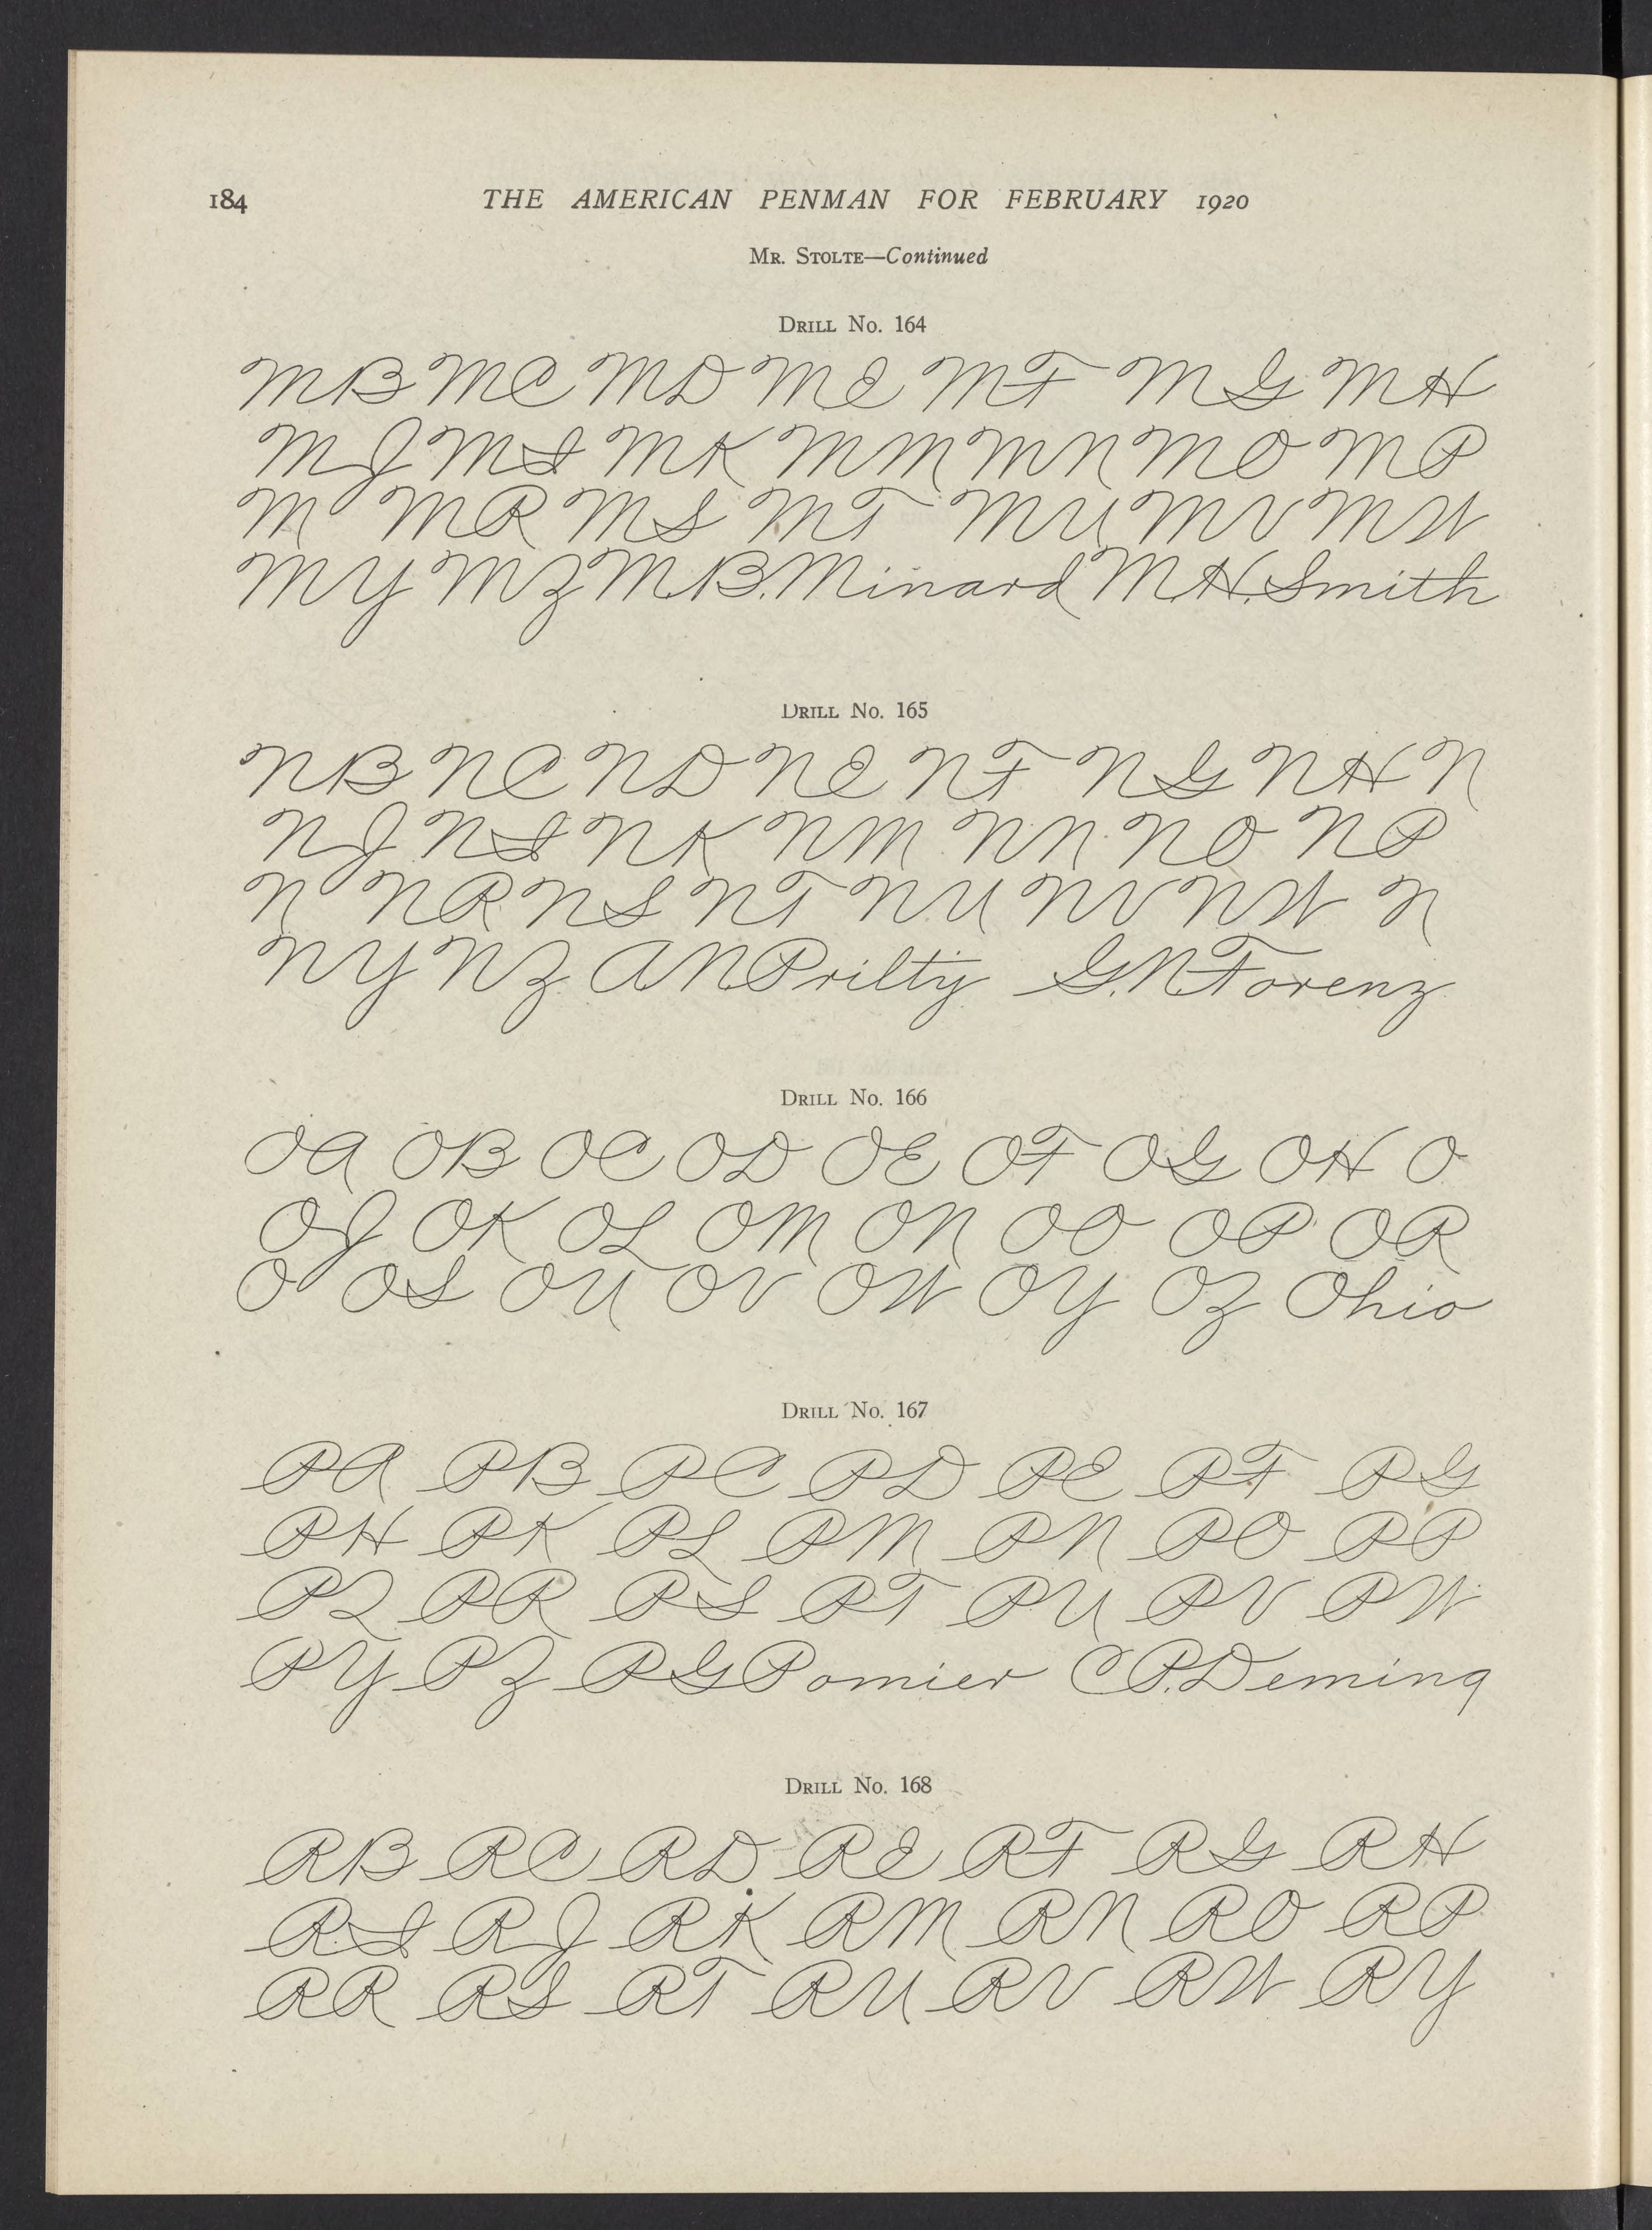 184 THE AMERICAN PENMAN FOR FEBRUARY 1920
Mr. Stolte—Continued
Drill No. 164
MB MC MD ME MF MG MH
MJ MI MK MM MN MO MP
M MR MS MT MU MV MW
MY MZ M.B. Minard M.H. Smith
Drill No. 165
NB NC ND NE NF NG NH N
NJ NI NK NM NN NO NP
N NR NS NT NU NV NW N
NY NZ A.N. Prilty G.N. Forenz
Drill No. 166
OA OB OC OD OE OF OG OH O
OJ OK OL OM ON OO OP OR
O OS OU OV OW OY OZ Ohio
Drill No. 167
PA PB PC PD PE PF PG
PH PK PL PM PN PO PP
PQ PR PS PT PU PV PW
PY PZ P G Pomier C P. Deming
Drill No. 168
RB RC RD RE RF RG RH
RI RJ RK RM RN RO RP
RR RS RT RU RV RW RY